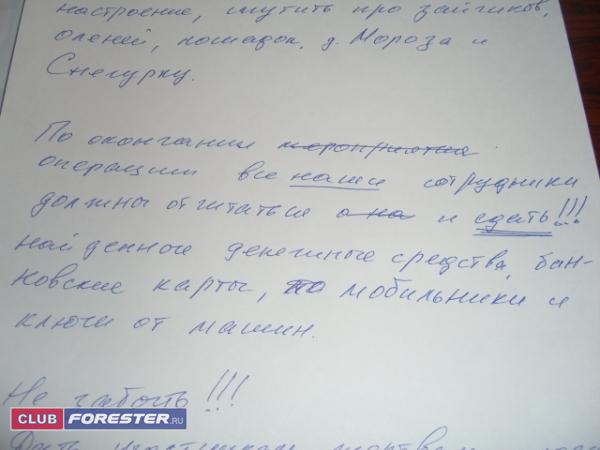 настроение, шутить про зайчиков,
оленей, лошадок, д. Мороза и
Снегурку.
По окончании мероприятия
операции все наши сотрудники
должны отчитаться о на и сдать!!!
найденное денежные средства, бан-
ковские карты, то мобильники и
ключи от машин.
Не забыть!!!
CLUB FORESTER.RU
Дать